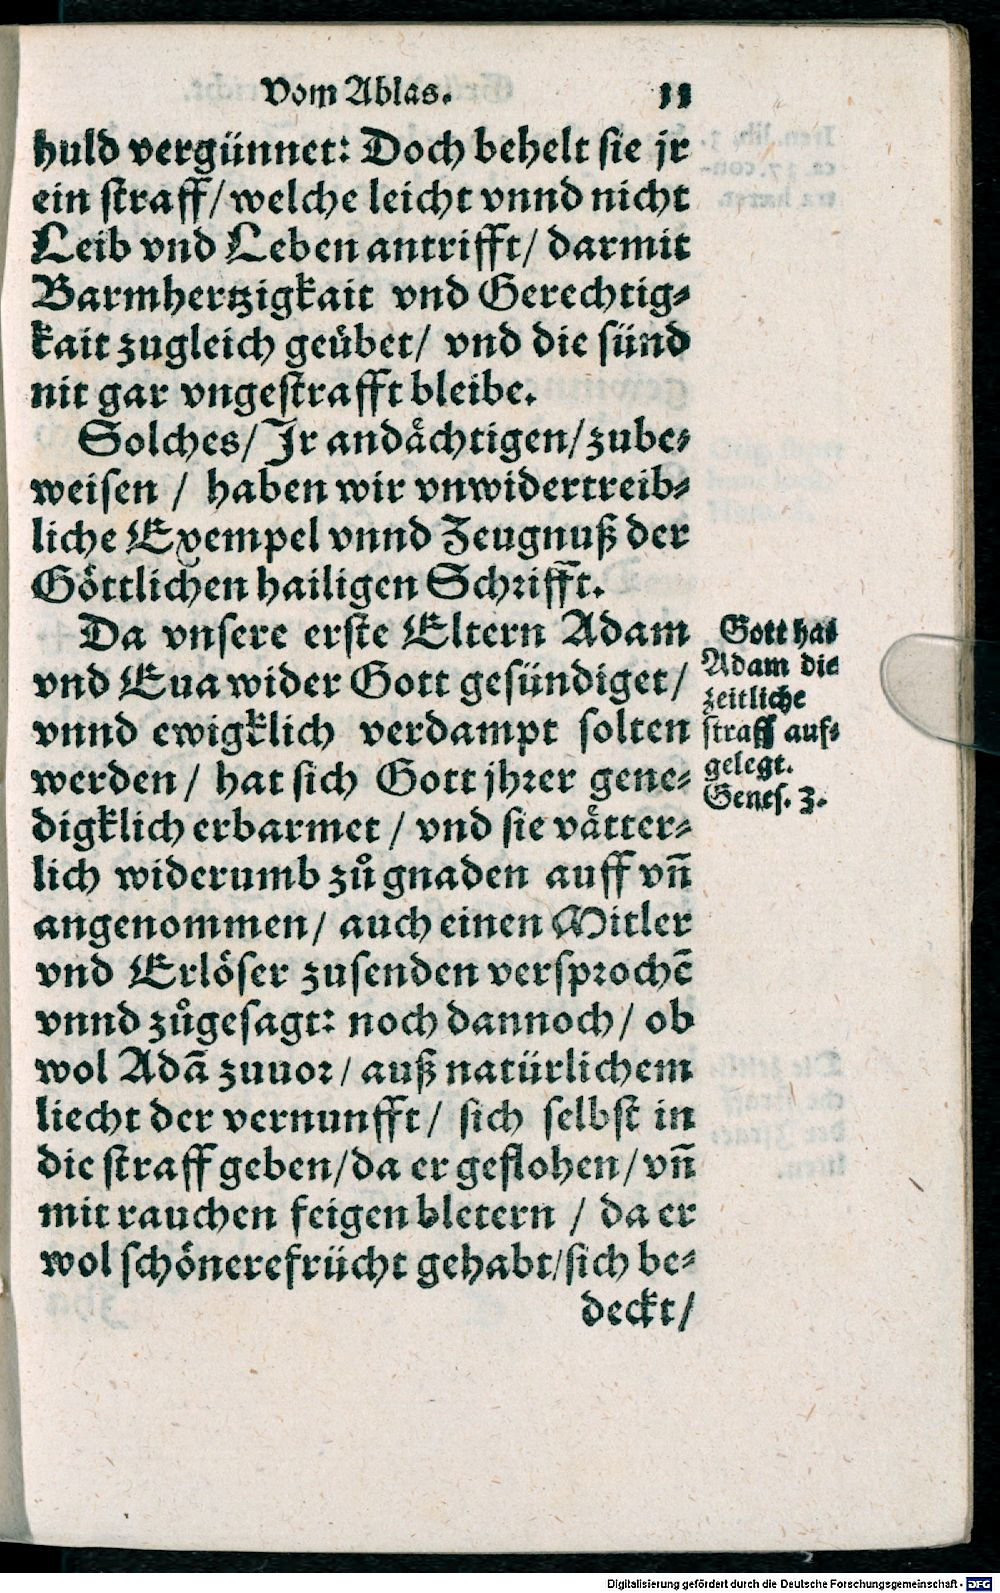 Vom Ablas. 11
huld vergünnet: Doch behelt sie jr
ein straff/ welche leicht vnnd nicht
Leib vnd Leben antrifft/ darmit
Barmhertzigkait vnd Gerechtig-
kait zugleich geübet/ vnd die sünd
nit gar vngestrafft bleibe.
Solches/ Jr andächtigen/ zube-
weisen / haben wir vnwidertreib-
liche Exempel vnnd Zeugnuß der
Göttlichen hailigen Schrifft.
Da vnsere erste Eltern Adam
vnd Eua wider Gott gesündiget/
vnnd ewigklich verdampt solten
werden/ hat sich Gott jhrer gene-
digklich erbarmet / vnd sie vätter-
lich widerumb zů gnaden auff vñ
angenommen/ auch einen Mitler
vnd Erlöser zusenden versprochẽ
vnnd zůgesagt: noch dannoch/ ob
wol Adã zuuor/ auß natürlichem
liecht der vernunfft/ sich selbst in
die straff geben/ da er geflohen/ vñ
mit rauchen feigen bletern / da er
wol schönere frücht gehabt/ sich be-
deckt/
Gott hat
Adam die
zeitliche
straff auf-
gelegt.
Genes. 3.
Digitalisierung gefördert durch die Deutsche Forschungsgemeinschaft - DFG